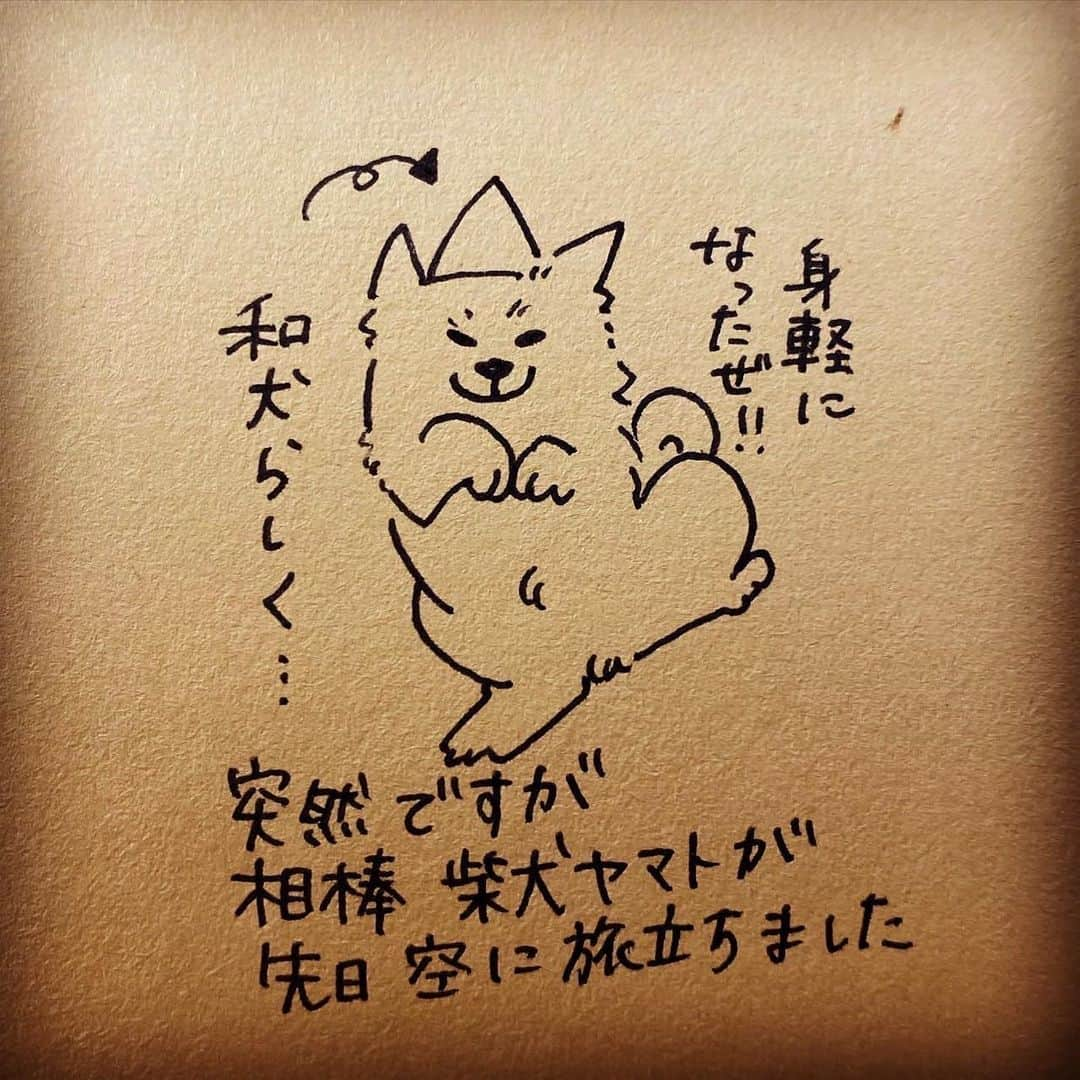 身軽に
なったぜ!!
和犬らしく…
突然ですが
相棒 柴犬ヤマトが
先日 空に旅立ちました